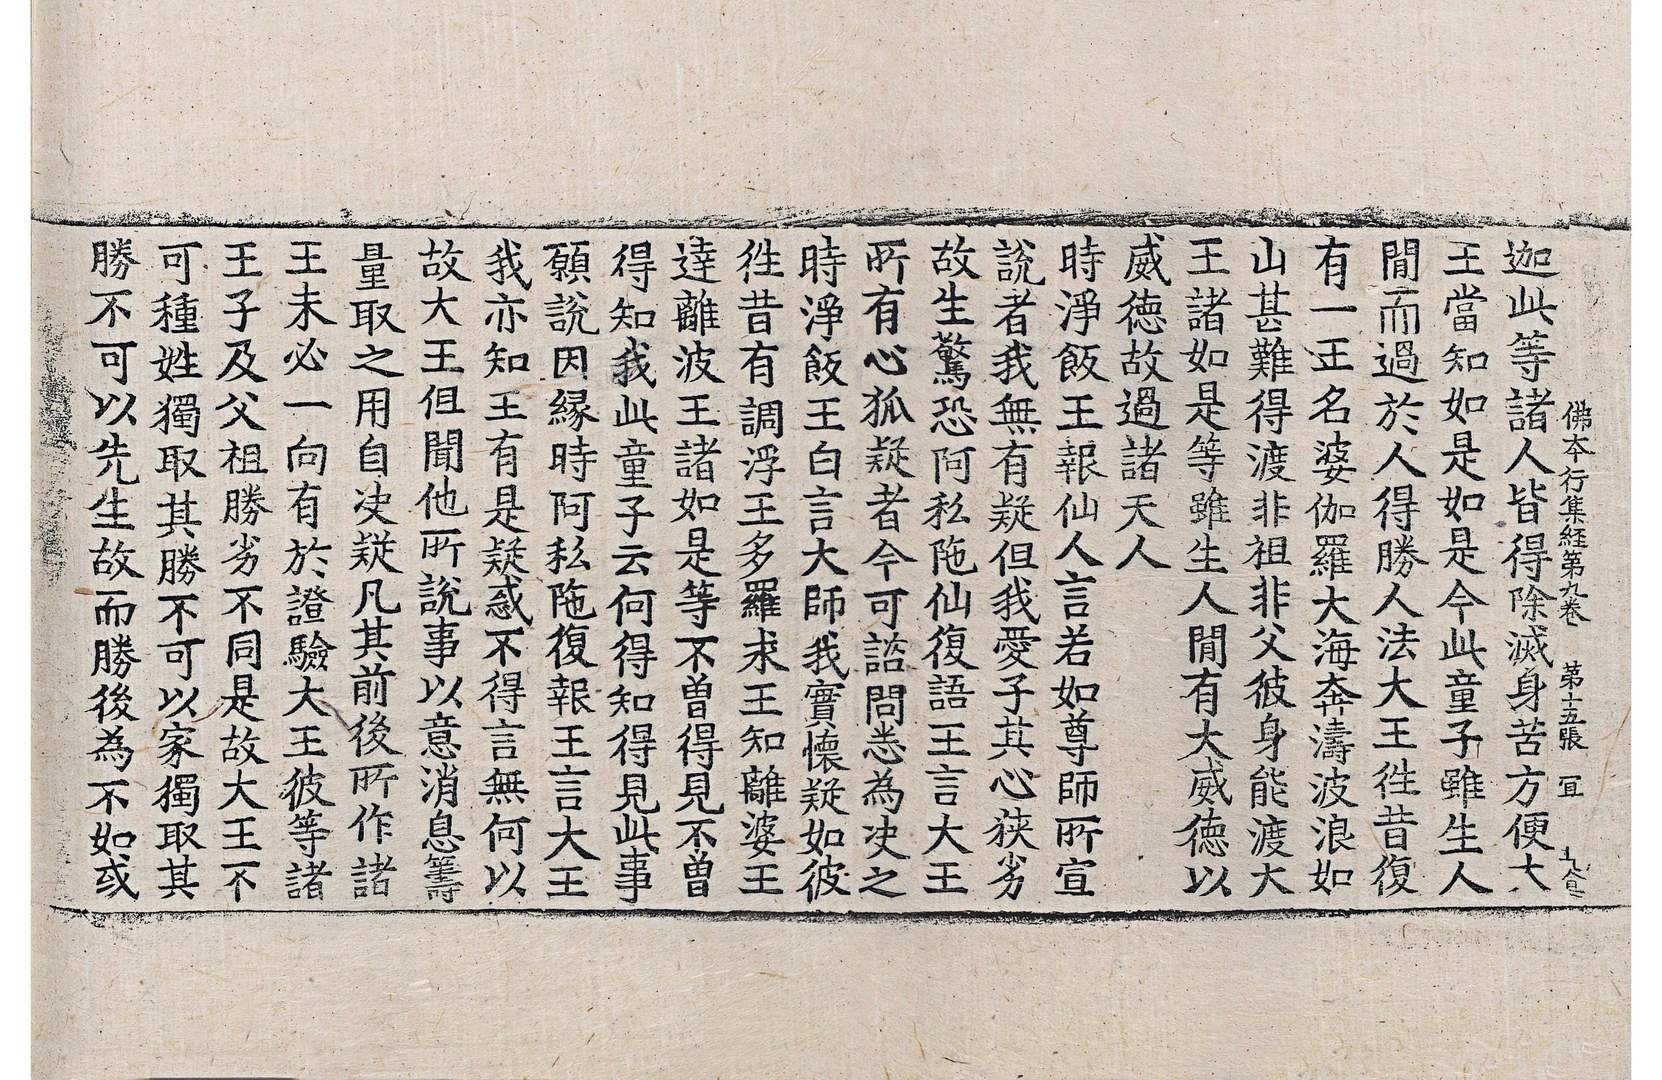 佛本行集経第九卷 第十五張 冝
迦此等諸人皆得除滅身苦方便大
王當知如是如是今此童子雖生人
間而過於人得勝人法大王往昔復
有一王名婆伽羅大海奔濤波浪如
山甚難得渡非祖非父彼身能渡大
王諸如是等雖生人間有大威德以
威德故過諸天人
時淨飯王報仙人言若如尊師所宣
說者我無有疑但我愛子其心狹劣
故生驚恐阿私陁仙復語王言大王
所有心狐疑者今可諮問悉為决之
時淨飯王白言大師我實懷疑如彼
往昔有調浮王多羅求王知離婆王
達離波王諸如是等不曽得見不曽
得知我此童子云何得知得見此事
願說因緣時阿私陁復報王言大王
我亦知王有是疑惑不得言無何以
故大王但聞他所說事以意消息籌
量取之用自决疑凡其前後所作諸
王未必一向有於證驗大王彼等諸
王子及父祖勝劣不同是故大王不
可種姓獨取其勝不可以家獨取其
勝不可以先生故而勝後為不如或